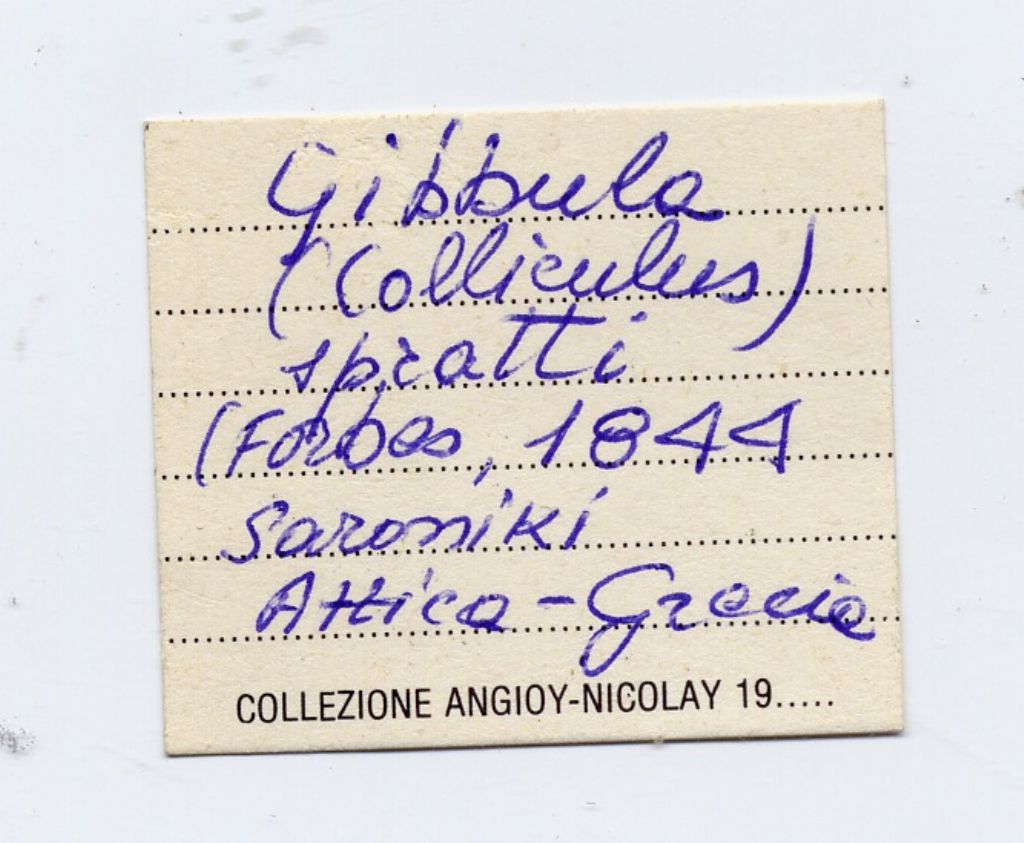 Gibbula
(Colliculus)
spratti
(Forbes, 1844
Saroniki
Attica - Grecia
COLLEZIONE ANGIOY-NICOLAY 19.....